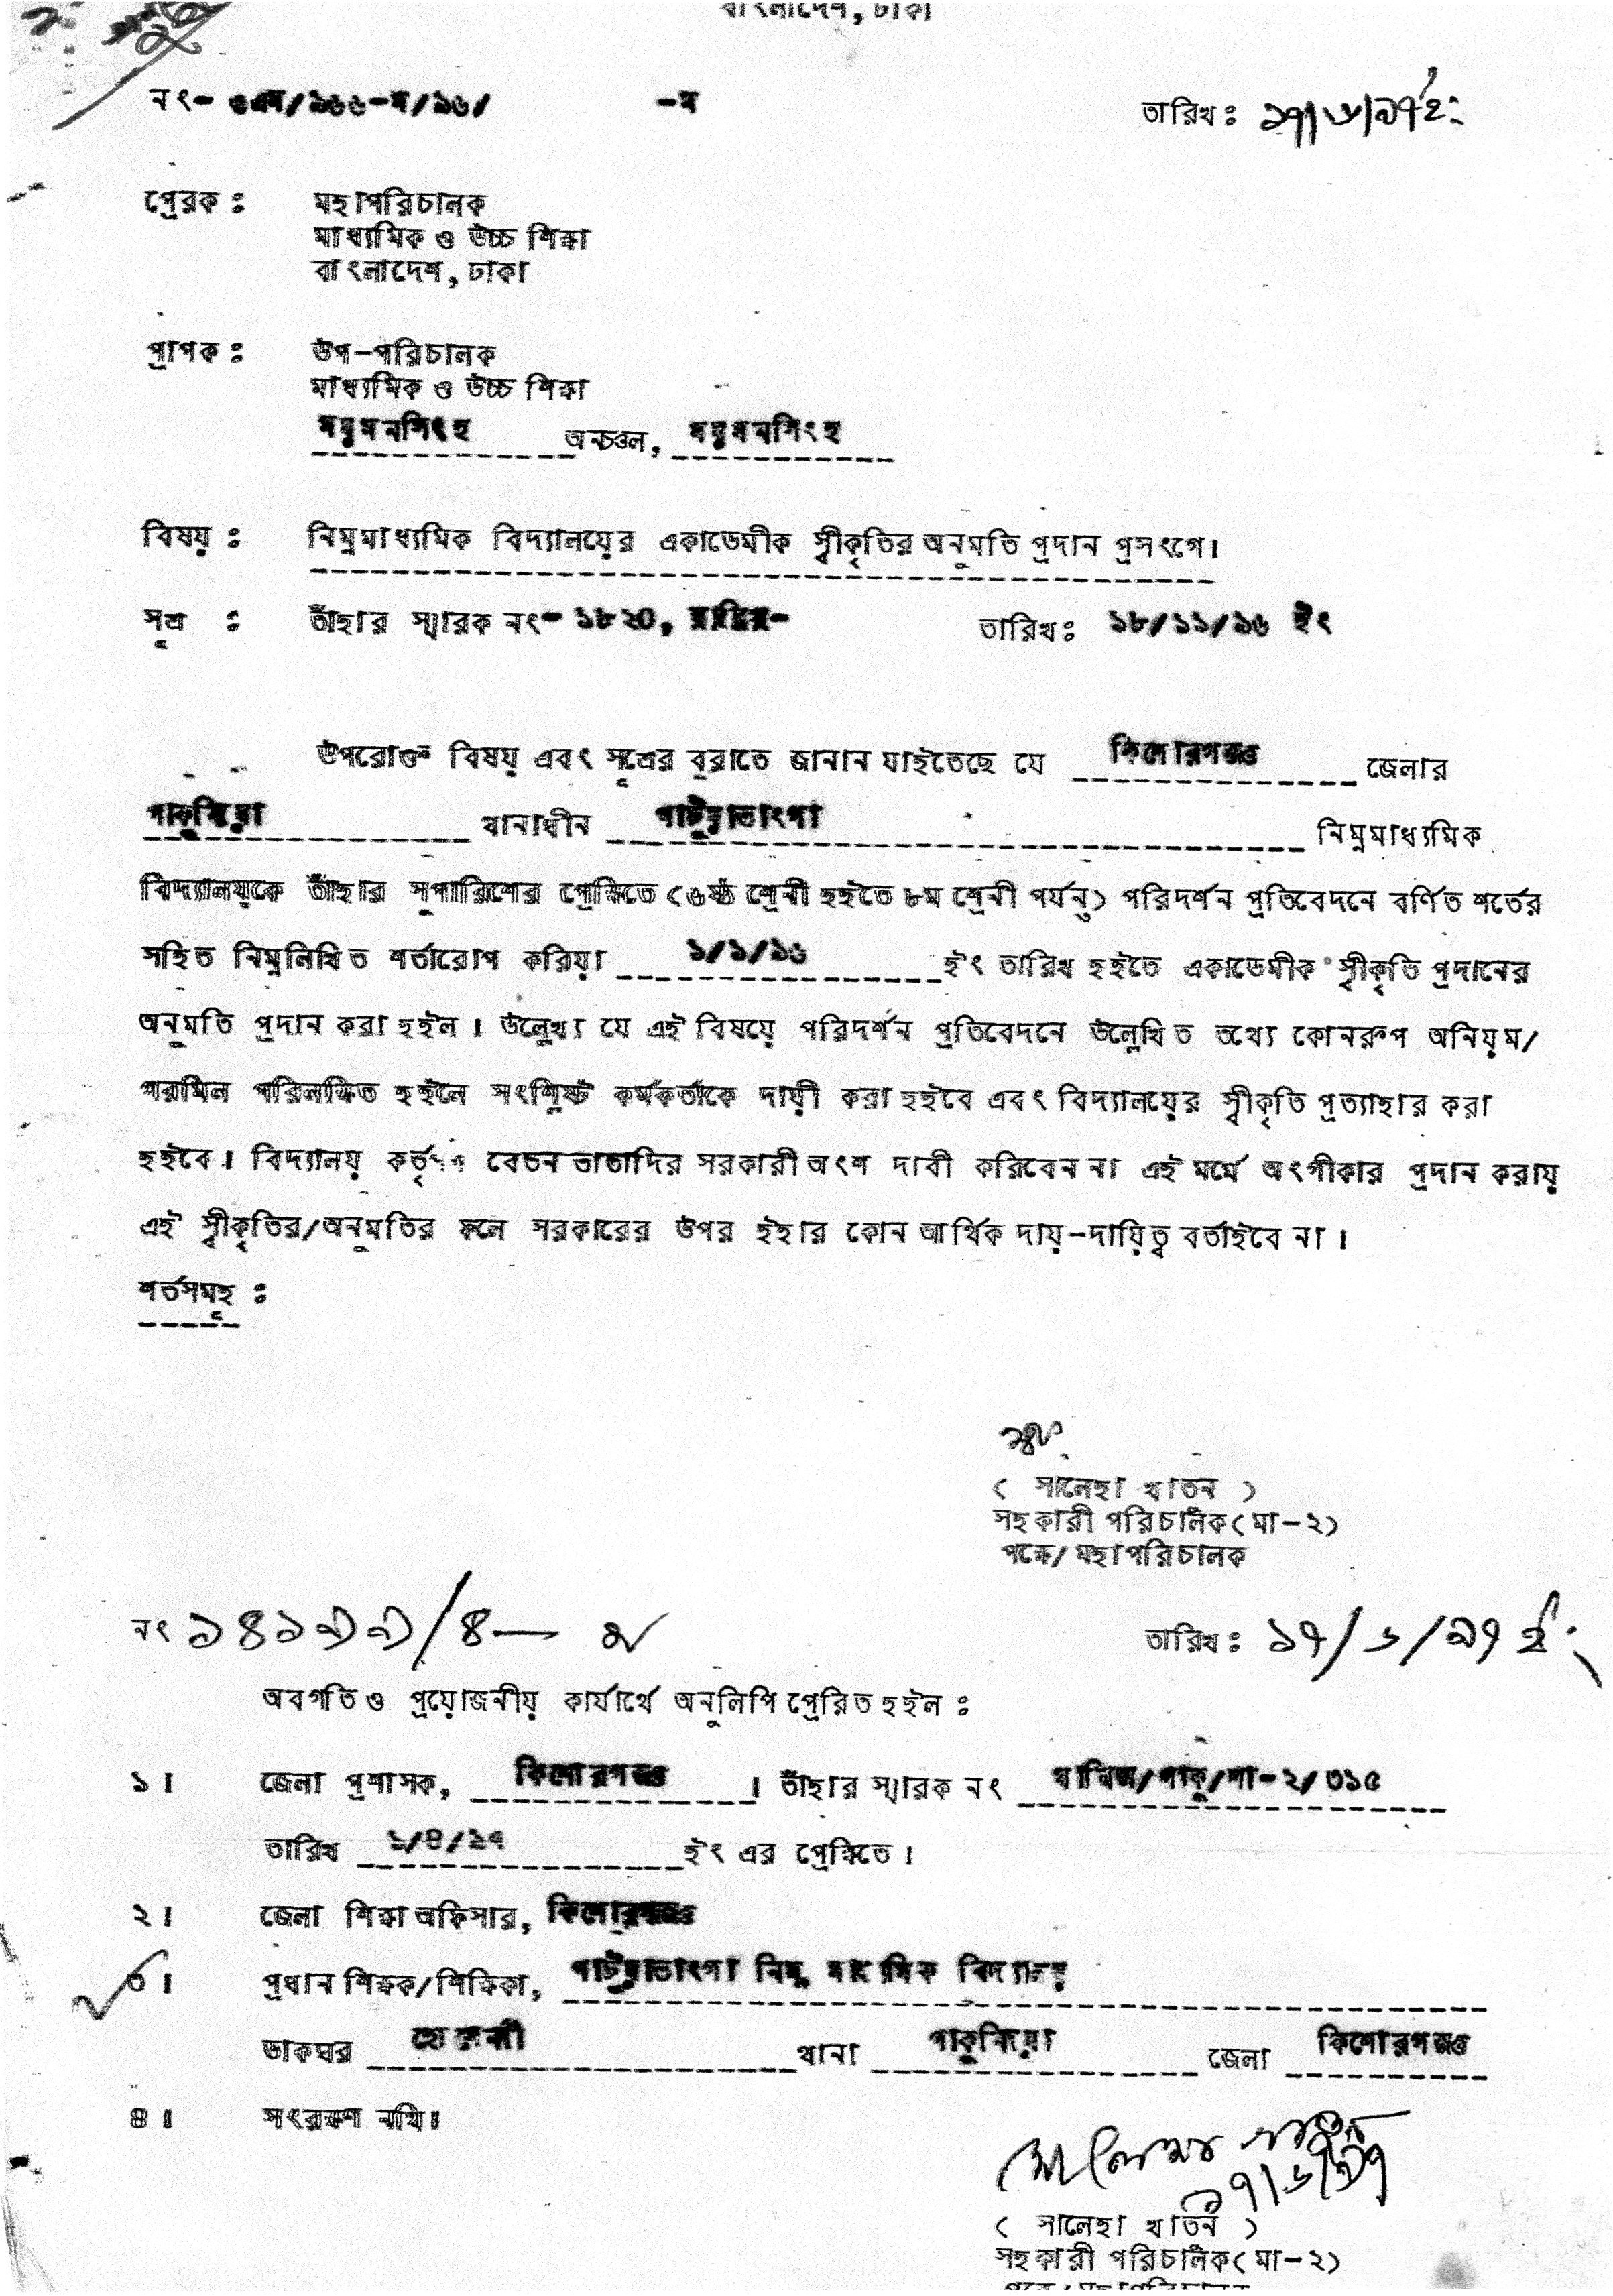 বাংলাদেশ, ঢাকা
নং- ওএম/১৬৬-ম/৯৬/ -ম তারিখঃ ১৭/৬/৯৭ ইং
প্রেরক ঃ মহাপরিচালক
মাধ্যমিক ও উচ্চ শিক্ষা
বাংলাদেশ, ঢাকা
প্রাপক ঃ উপ-পরিচালক
মাধ্যমিক ও উচ্চ শিক্ষা
ময়মনসিংহ অনচ্চল, ময়মনসিংহ
বিষয় ঃ নিম্নমাধ্যমিক বিদ্যালয়ের একাডেমীক স্বীকৃতির অনুমতি প্রদান প্রসংগে।
সূত্র ঃ তাঁহার স্মারক নং- ১৮২০, তারিখঃ ১৮/১১/৯৬ ইং
উপরোক্ত বিষয় এবং সূত্রের বরাতে জানান যাইতেছে যে কিশোরগঞ্জ জেলার
পাকুন্দিয়া থানাধীন পাটুয়াভাংগা নিম্নমাধ্যমিক
বিদ্যালয়কে তাঁহার সুপারিশের প্রেক্ষিতে (৬ষ্ঠ শ্রেনী হইতে ৮ম শ্রেনী পর্যন্ত) পরিদর্শন প্রতিবেদনে বর্ণিত শর্তের
সহিত নিম্নলিখিত শর্তারোপ করিয়া ১/১/৯৬ ইং তারিখ হইতে একাডেমীক স্বীকৃতি প্রদানের
অনুমতি প্রদান করা হইল। উল্লেখ্য যে এই বিষয়ে পরিদর্শন প্রতিবেদনে উল্লেখিত তথ্যে কোনরুপ অনিয়ম/
গরমিল পরিলক্ষিত হইলে সংশ্লিষ্ট কর্মকর্তাকে দায়ী করা হইবে এবং বিদ্যালয়ের স্বীকৃতি প্রত্যাহার করা
হইবে। বিদ্যালয় কর্তৃপক্ষ বেতন ভাতাদির সরকারী অংশ দাবী করিবেন না এই মর্মে অংগীকার প্রদান করায়
এই স্বীকৃতির/অনুমতির ফলে সরকারের উপর ইহার কোন আর্থিক দায়-দায়িত্ব বর্তাইবে না।
শর্তসমূহ ঃ
( সালেহা খাতুন )
সহকারী পরিচালক(মা-২)
পক্ষে/মহাপরিচালক
নং ১৪১৯৯/৪- ম তারিখঃ ১৭/৬/৯৭ ইং
অবগতি ও প্রয়োজনীয় কার্যার্থে অনুলিপি প্রেরিত হইল ঃ
১। জেলা প্রশাসক, কিশোরগঞ্জ। তাঁহার স্মারক নং থানিঅ/পাকু/শা-২/৩১৫
তারিখ ১/৪/৯৭ ইং এর প্রেক্ষিতে।
২। জেলা শিক্ষা অফিসার, কিশোরগঞ্জ
৩। প্রধান শিক্ষক/শিক্ষিকা, পাটুয়াভাংগা নিম্ন মাধ্যমিক বিদ্যালয়
ডাকঘর থানা পাকুন্দিয়া জেলা কিশোরগঞ্জ
৪। সংরক্ষণ নথি।
১৭/৬/৯৭
( সালেহা খাতুন )
সহকারী পরিচালক(মা-২)
পক্ষে/মহাপরিচালক